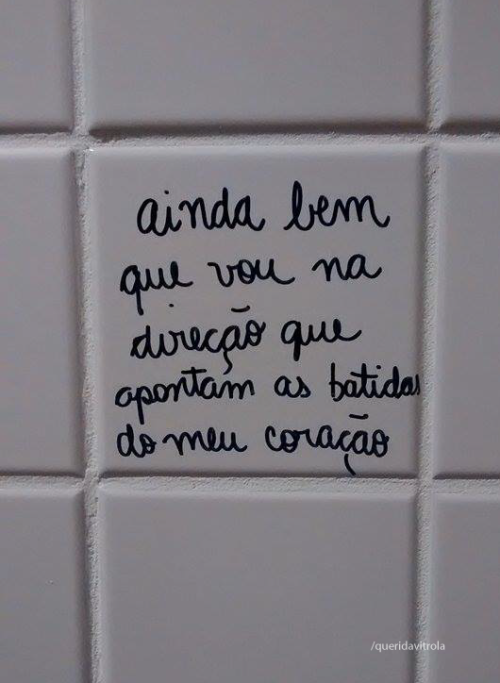 ainda bem
que vou na
direção que
apontam as batidas
do meu coração
/queridavitrola